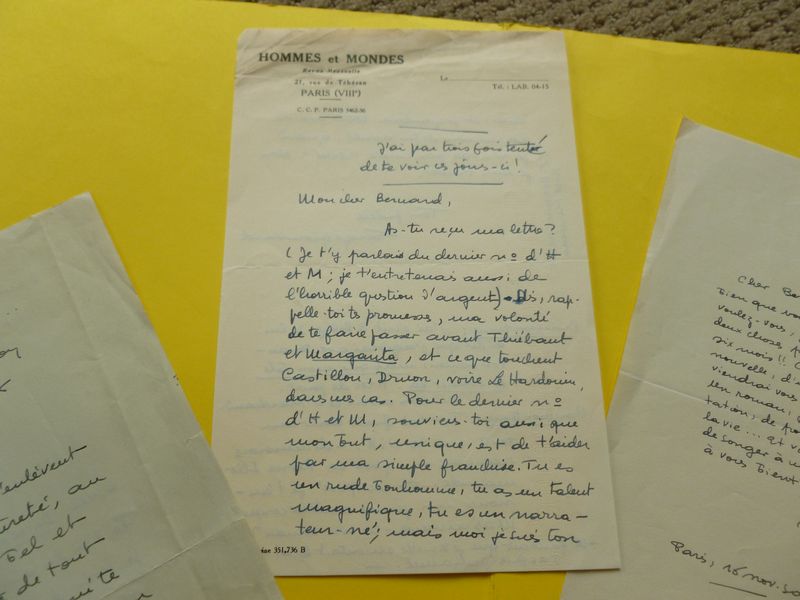 HOMMES et MONDES
Revue Mensuelle
21, rue de Téhéran
PARIS (VIIIe)
C. C. P. PARIS 5462-56
Le
Tél : LAB. 04-15
J'ai par trois fois tenté
de te voir ces jours-ci !
Mon cher Bernard,
As-tu reçu ma lettre ?
(Je t'y parlais du dernier no d'H
et M ; je t'entretenais aussi de
l'horrible question d'argent). Dis, rap-
pelle-toi tes promesses, ma volonté
de te faire passer avant Thiébaut
et Margarita, et ce que touchent
Castillou, Druon, voire Le Hardouin,
dans mes cas. Pour le dernier no
d'H et M, souviens-toi aussi que
mon tout, unique, est de t'aider
par ma simple franchise. Tu es
un rude bonhomme, tu as un talent
magnifique, tu es un narra-
teur-né ; mais moi je suis ton
351,736 B
enlèvent
tel et
de tout
Cher Be
bien que vou
voulez-vous,
deux choses,
six mois !!
nouvelle, d'a
viendrai vous
un roman,
tation, de fro
la vie... et v
de songer à u
à vous bient
Paris, 16 nov.